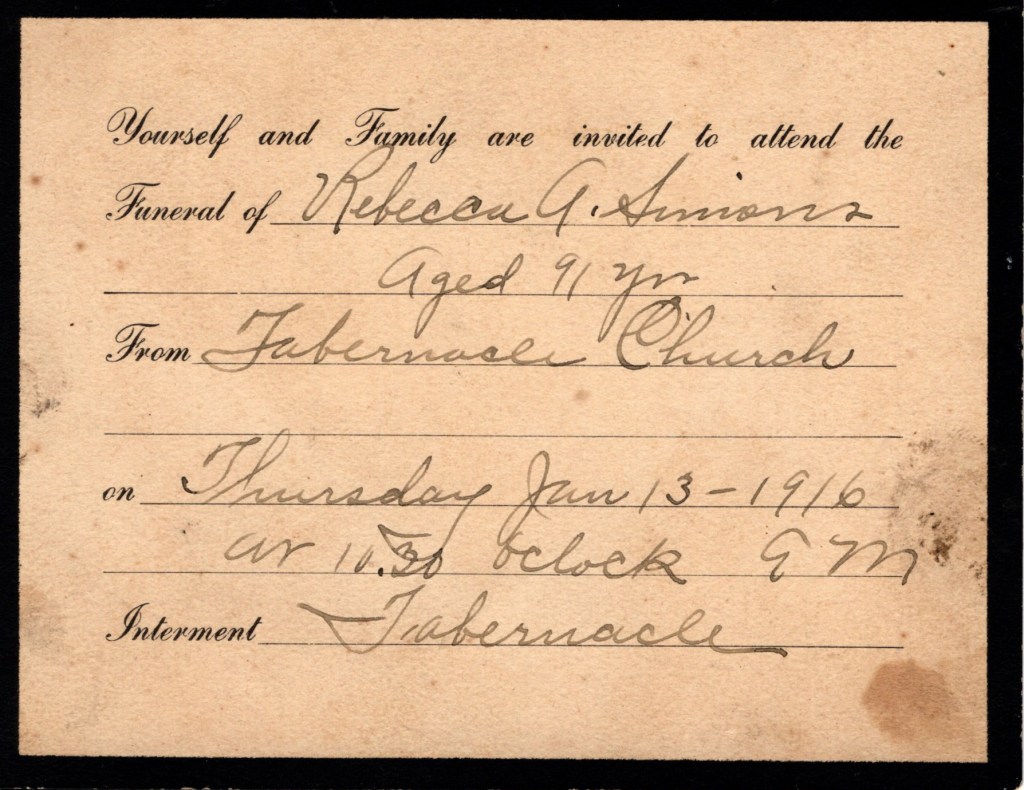 Yourself and Family are invited to attend the
Funeral of Rebecca A. Simons
Aged 91 yrs
From Tabernacle Church
on Thursday Jan 13 - 1916
at 10.30 oclock A M
Interment Tabernacle